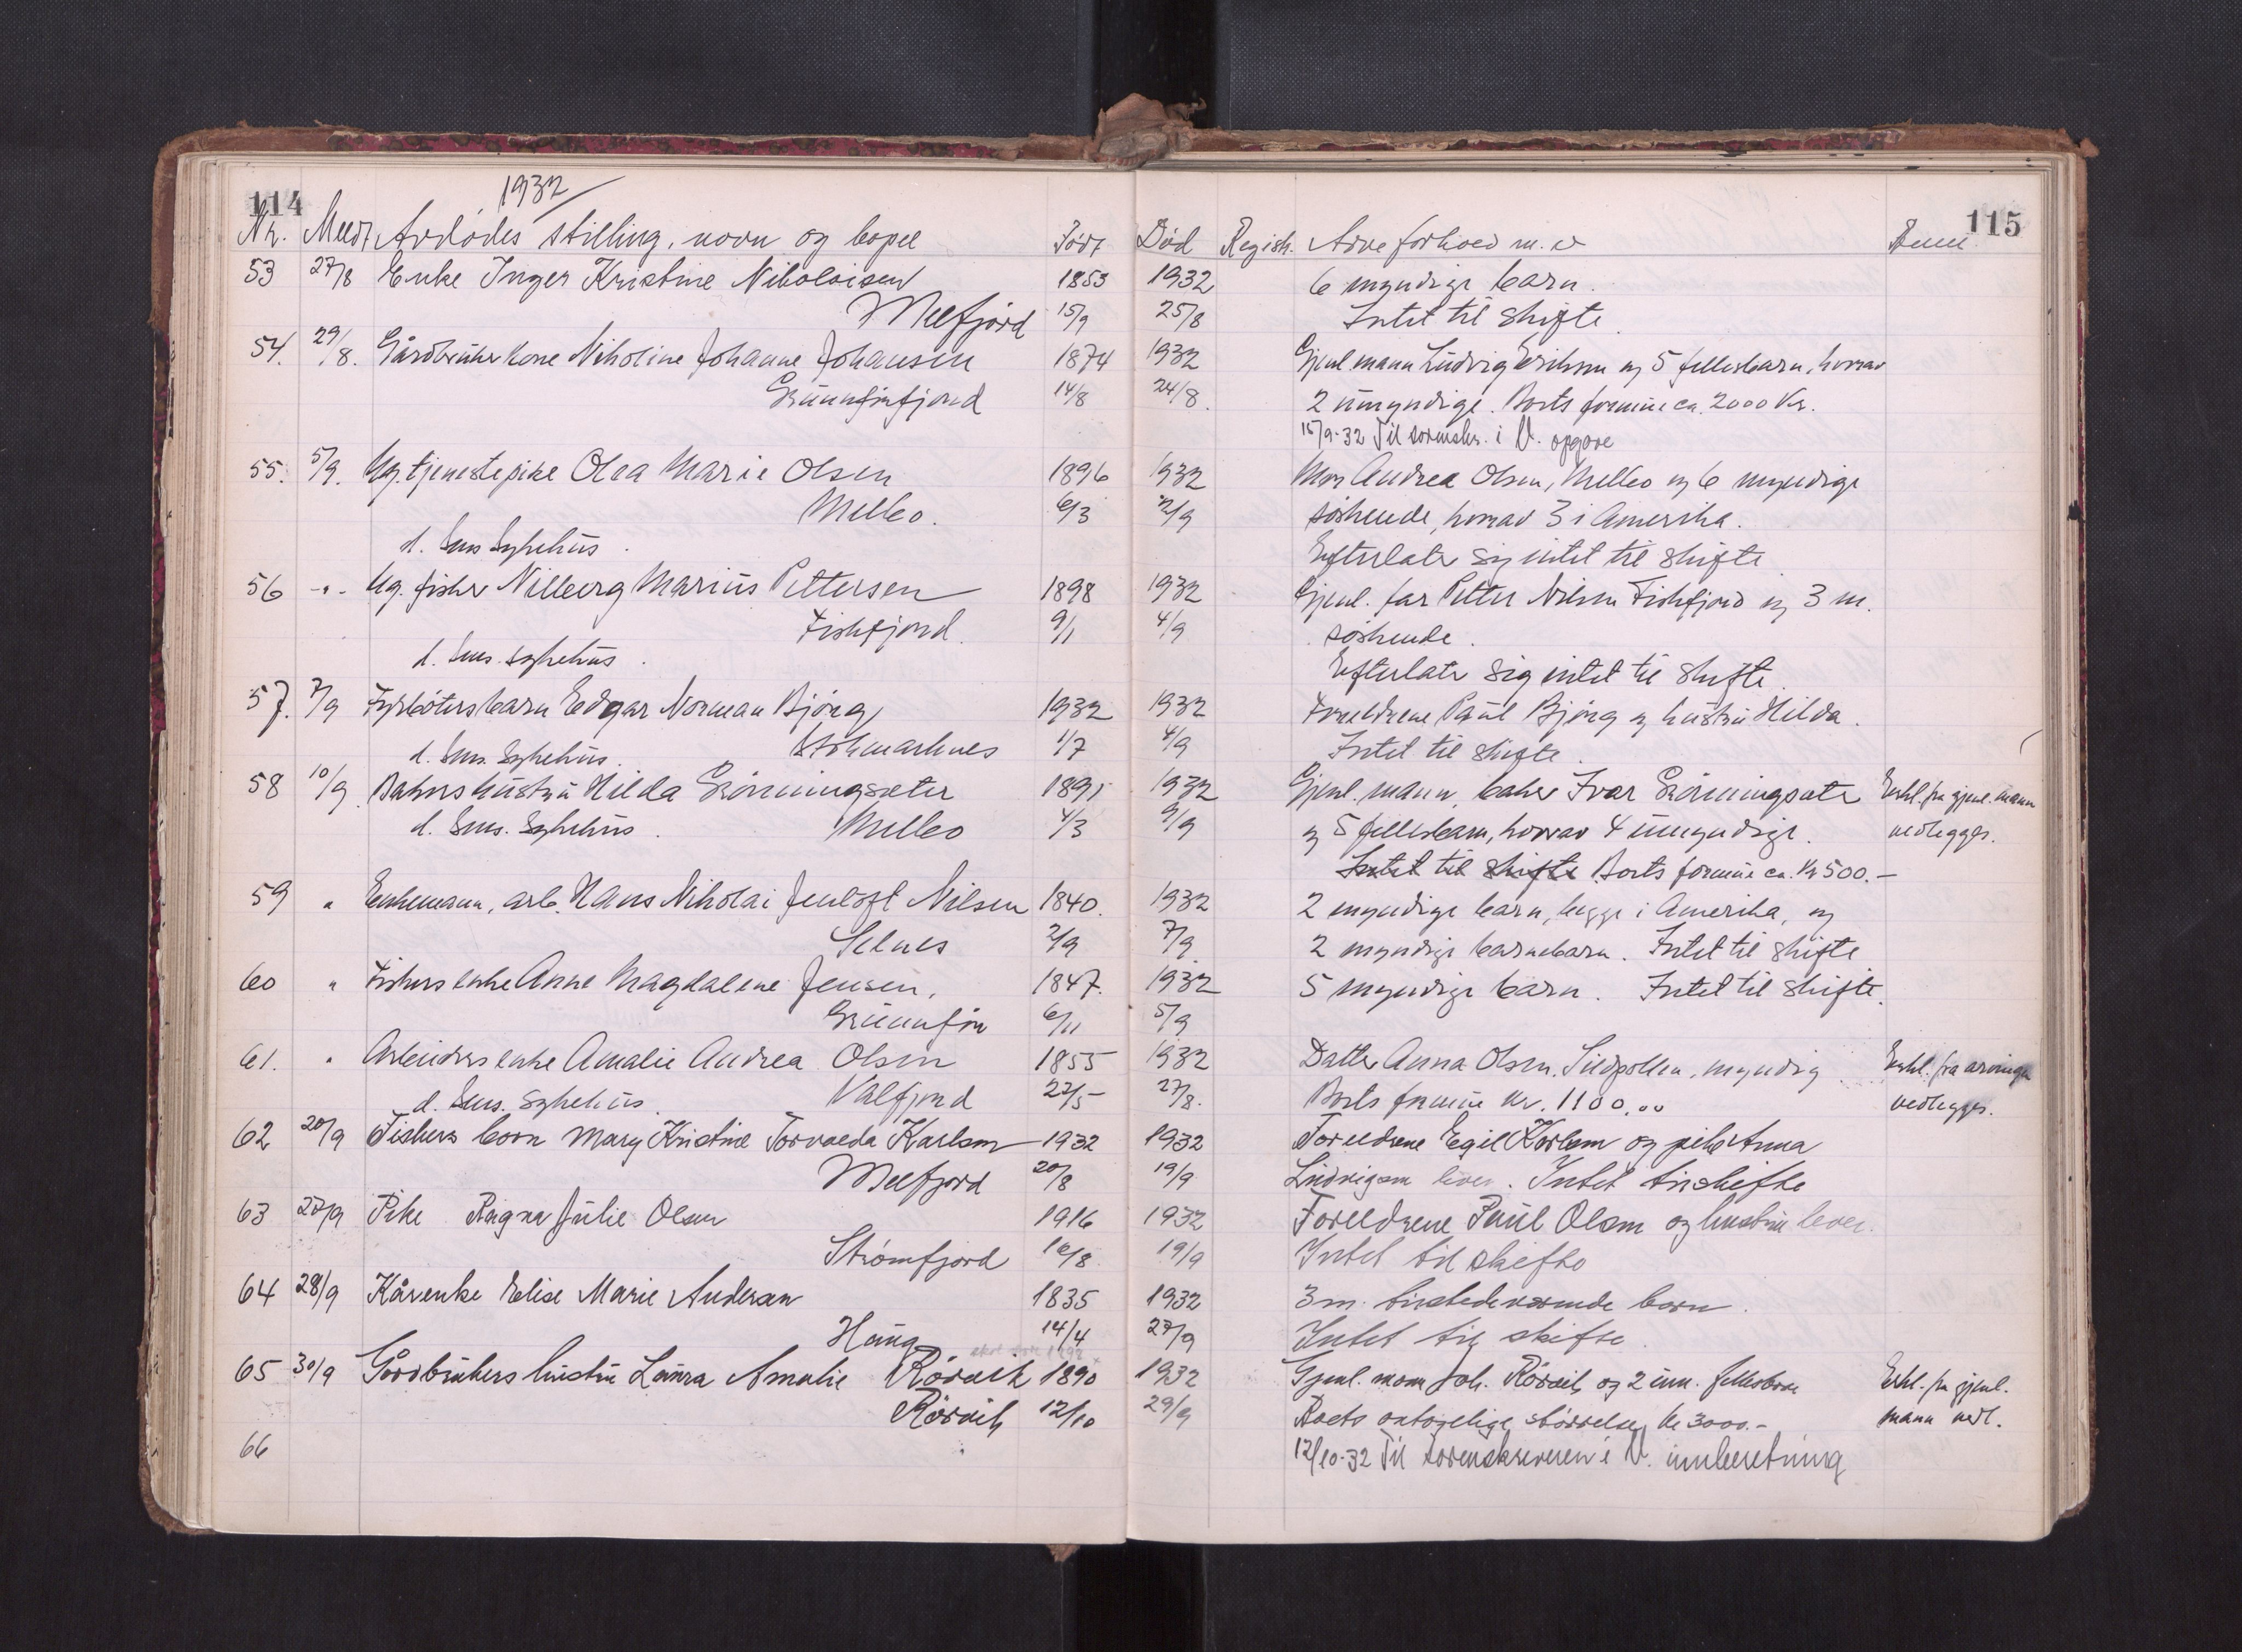 114
1932
115
Nr. Medt Avdødes stilling, navn og bopel Født Død Registr. Arveforhold m. v
53 27/8 Enke Inger Kristine Nikolaisen 1853 1932 6 myndige barn.
Melfjord 15/9 25/8 Intet til skifte
54. 29/8. Gårdbruker kone Nikoline Johanne Johansen 1874 1932 Gjenl. mann Ludvig Eriksen og 5 fellesbarn, horrav
Grunnførfjord 14/8 24/8. 2 umyndige. Boets formue ca. 2000 kr.
15/9-32 Til sorenskr. i V. opgave
55. 5/9. Ug. tjenestepike Olea Marie Olsen 1896 1932 Mor Andrea Olsen, Melbo og 6 myndige
Melbo. 6/3 2/9 søskende, horrav 3 i Amerika.
d. Sms Sykehus. Efterlater sig intet til skifte
56 -"- Ug. fisker Nilberg Marius Pettersen 1898 1932 Gjenl. far Petter Nilsen Fiskfjord og 3 m.
Fiskfjord. 9/1 4/9 søskende.
d. Sms. sykehus. Efterlater sig intet til skifte.
57. 7/9 Fyrbøters barn Edgar Norman Bjørg, 1932 1932 Foreldrene Paul Bjørg og hustru Hilda.
d. Sms. Sykehus. Stokmarknes 1/7 4/9 Intet til skifte.
58 10/9 Bakers hustru Hilda Grønningsæter 1891 1932 Gjenl. mann, baker Ivar Grønningsæter Erkl. fra gjenl. mann
d. Sms. Sykehus. Melbo 4/3 9/9 og 5 fellesbarn, horrav 4 umyndige. vedlegges.
Intet til skifte Boets formue ca. kr 500.-
59 " Enkemann, arb. Hans Nikolai Jentoft Nilsen 1840. 1932 2 myndige barn, begge i Amerika, og
Selnes 2/9 7/9. 2 myndige barnebarn. Intet til skifte
60 " Fiskers enke Anne Magdalene Jensen, 1847. 1932 5 myndige barn. Intet til skifte.
Grunnfør 6/11 5/9
61. " Arbeiders enke Amalie Andrea Olsen 1855 1932 Datter Anna Olsen, Sildpollen, myndig Erkl. fra arvinga
d. Sms. Sykehus. Valfjord 22/5 27/8. Boets formue kr. 1100,00 vedlegges.
62 20/9 Fiskers barn Mary Kristine Torvalda Karlsen 1932 1932 Foreldrene Egil Karlsen og pike Anna
Melfjord 20/8 19/9 Ludvigsen lever. Intet til skifte
63 27/9 Pike Ragna Julie Olsen 1916 1932 Foreldrene Paul Olsen og hustru lever.
Strømfjord 10/8 19/9 Intet til skifte
64 28/9 Kårenke Elise Marie Andersen 1835 1932 3 m. tilstedeværende barn.
Haug 14/4 27/9 Intet til skifte.
65 30/9 Gårdbrukers hustru Laura Amalie Rørvik 1890 1932 Gjenl. mann Joh. Rørvik og 2 um. fellesbarn Erkl. fra gjenl.
Rørvik 12/10 29/9 Boets antagelige størrelse kr 3000.- mann vedl.
66 12/10-32 Til sorenskriveren i V. innberetning